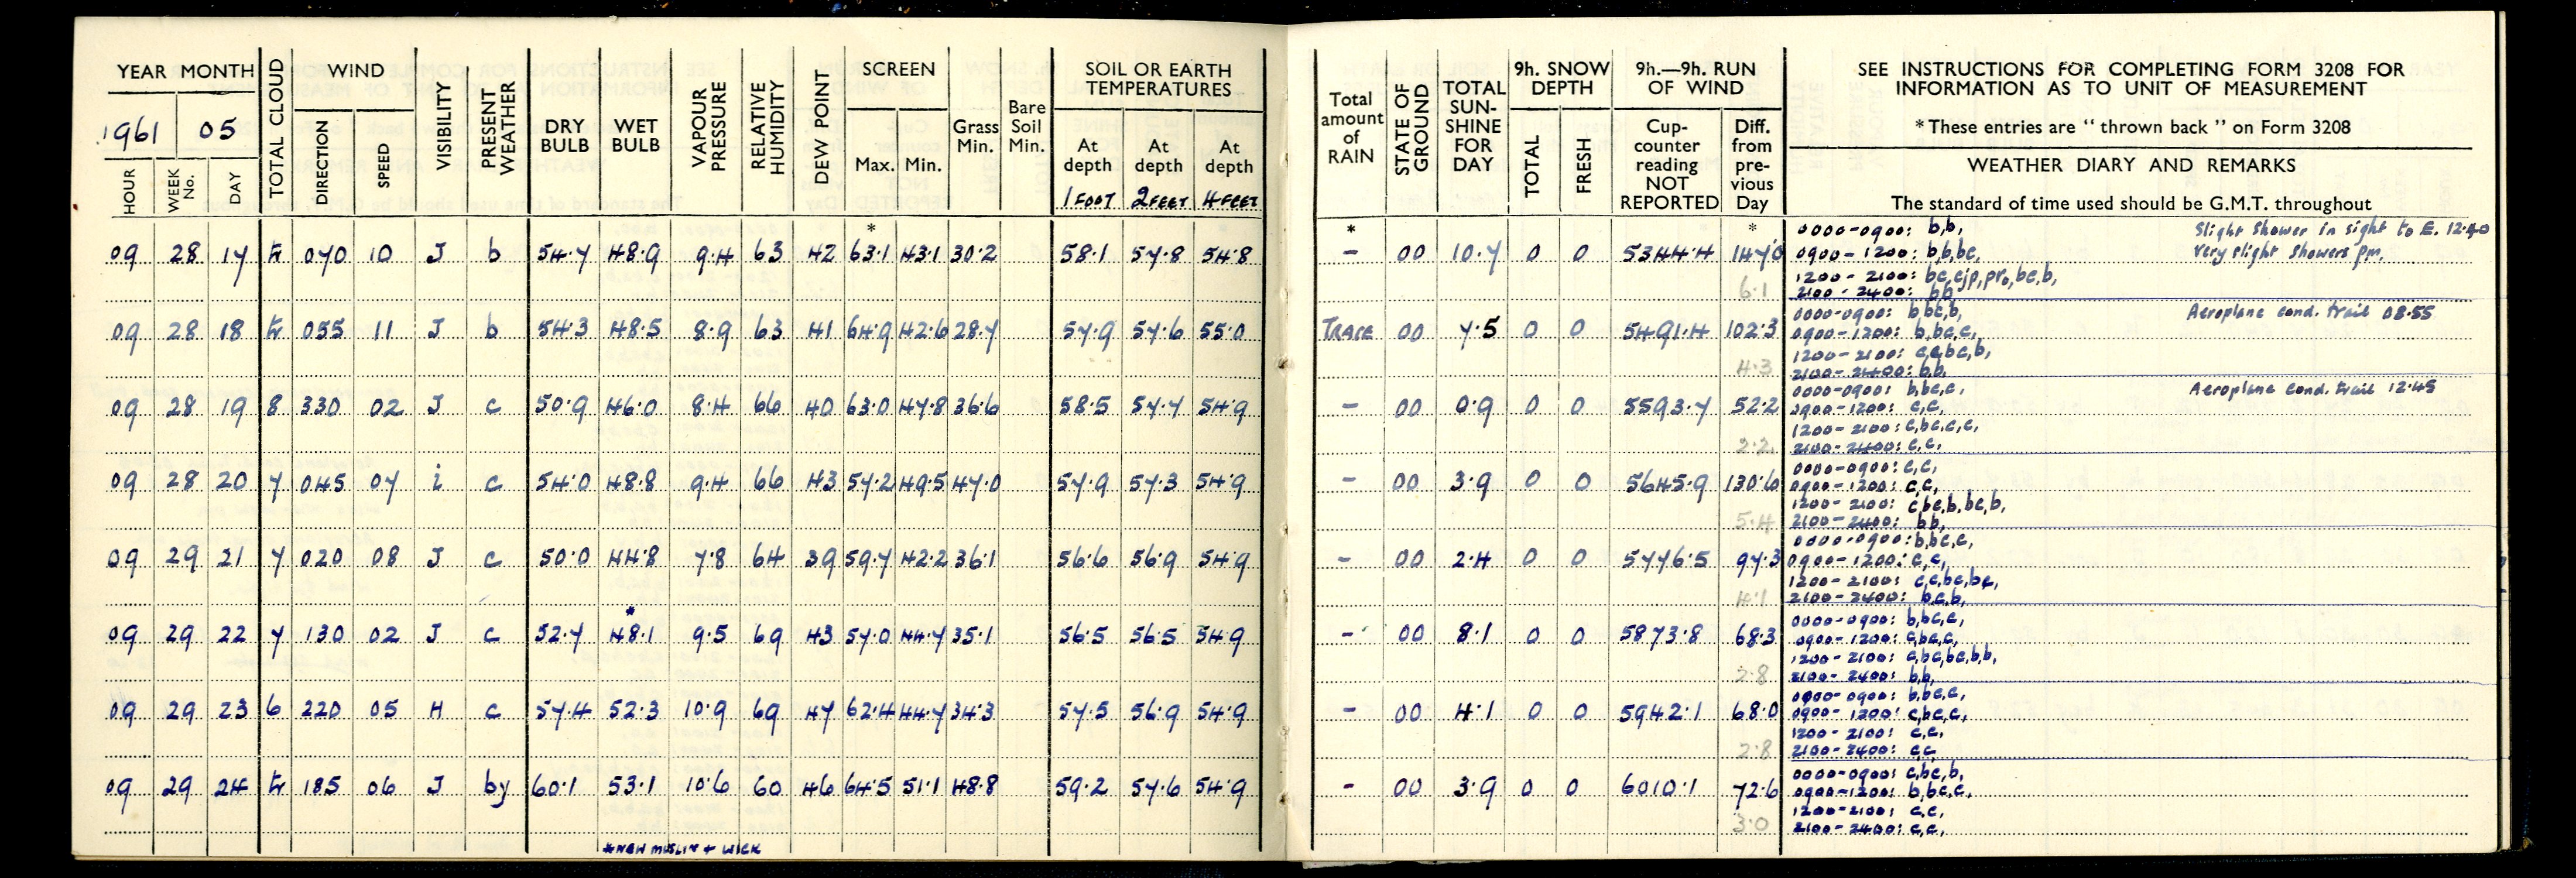 YEAR MONTH
1961 05
HOUR
WEEK No.
DAY
TOTAL CLOUD
WIND
DIRECTION
SPEED
VISIBILITY
PRESENT WEATHER
DRY BULB
WET BULB
VAPOUR PRESSURE
RELATIVE HUMIDITY
DEW POINT
SCREEN
Max. Min.
Grass Min.
Bare Soil Min.
SOIL OR EARTH
TEMPERATURES
At depth 1 FOOT
At depth 2 FEET
At depth 4 FEET
*
09 28 17 tr 070 10 J b 54.7 48.9 9.4 63 42 63.1 43.1 30.2 58.1 57.8 54.8
09 28 18 tr 055 11 J b 54.3 48.5 8.9 63 41 64.9 42.6 28.7 57.9 57.6 55.0
09 28 19 8 330 02 J c 50.9 46.0 8.4 66 40 63.0 47.8 36.6 58.5 57.7 54.9
09 28 20 7 045 07 i c 54.0 48.8 9.4 66 43 57.2 49.5 47.0 57.9 57.3 54.9
09 29 21 7 020 08 J c 50.0 44.8 7.8 64 39 59.7 42.2 36.1 56.6 56.9 54.9
*
09 29 22 7 130 02 J c 52.7 48.1 9.5 69 43 57.0 44.7 35.1 56.5 56.5 54.9
09 29 23 6 220 05 H c 57.4 52.3 10.9 69 47 62.4 44.7 34.3 57.5 56.9 54.9
09 29 24 tr 185 06 J by 60.1 53.1 10.6 60 46 64.5 51.1 48.8 59.2 57.6 54.9
*NEW MUSLIN + WICK
Total amount of RAIN
STATE OF GROUND
TOTAL SUN-SHINE FOR DAY
9h. SNOW DEPTH
TOTAL
FRESH
9h.—9h. RUN OF WIND
Cup-counter reading NOT REPORTED
Diff. from pre-vious Day
SEE INSTRUCTIONS FOR COMPLETING FORM 3208 FOR
INFORMATION AS TO UNIT OF MEASUREMENT
* These entries are "thrown back" on Form 3208
WEATHER DIARY AND REMARKS
The standard of time used should be G.M.T. throughout
* *
0000-0900: b,b, Slight shower in sight to E. 12.40
– 00 10.7 0 0 5344.4 147.0 0900-1200: b,b,bc, Very slight showers pm.
1200-2100: bc,cjp,pr₀,bc,b,
6.1 2100-2400: b,b,
0000-0900: b,bc,b, Aeroplane cond. trail 08.55
TRACE 00 7.5 0 0 5491.4 102.3 0900-1200: b,bc,c,
1200-2100: c,c,bc,b,
4.3 2100-2400: b,b,
0000-0900: b,bc,c, Aeroplane cond. trail 12.45
– 00 0.9 0 0 5593.7 52.2 0900-1200: c,c,
1200-2100: c,bc,c,c,
2.2 2100-2400: c,c,
0000-0900: c,c,
– 00 3.9 0 0 5645.9 130.6 0900-1200: c,c,
1200-2100: c,bc,b,bc,b,
5.4 2100-2400: b,b,
0000-0900: b,bc,c,
– 00 2.4 0 0 5776.5 97.3 0900-1200: c,c,
1200-2100: c,c,bc,bc,
4.1 2100-2400: bc,b,
0000-0900: b,bc,c,
– 00 8.1 0 0 5873.8 68.3 0900-1200: c,bc,c,
1200-2100: c,bc,bc,b,b,
2.8 2100-2400: b,b,
0000-0900: b,bc,c,
– 00 4.1 0 0 5942.1 68.0 0900-1200: c,bc,c,
1200-2100: c,c,
2.8 2100-2400: c,c
0000-0900: c,bc,b,
– 00 3.9 0 0 6010.1 72.6 0900-1200: b,bc,c,
1200-2100: c,c,
3.0 2100-2400: c,c,